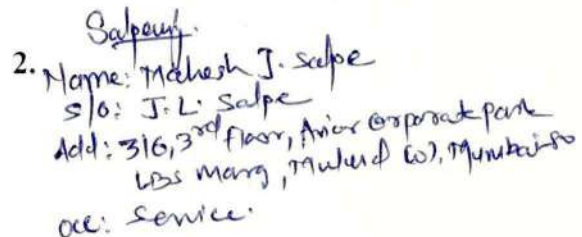 2.
Name: Mahesh J. Salpe
S/o: J. L. Salpe
Add: 316, 3rd floor, Avior Corporate park
LBS Marg, Mulund (W), Mumbai-80
occ: Service.